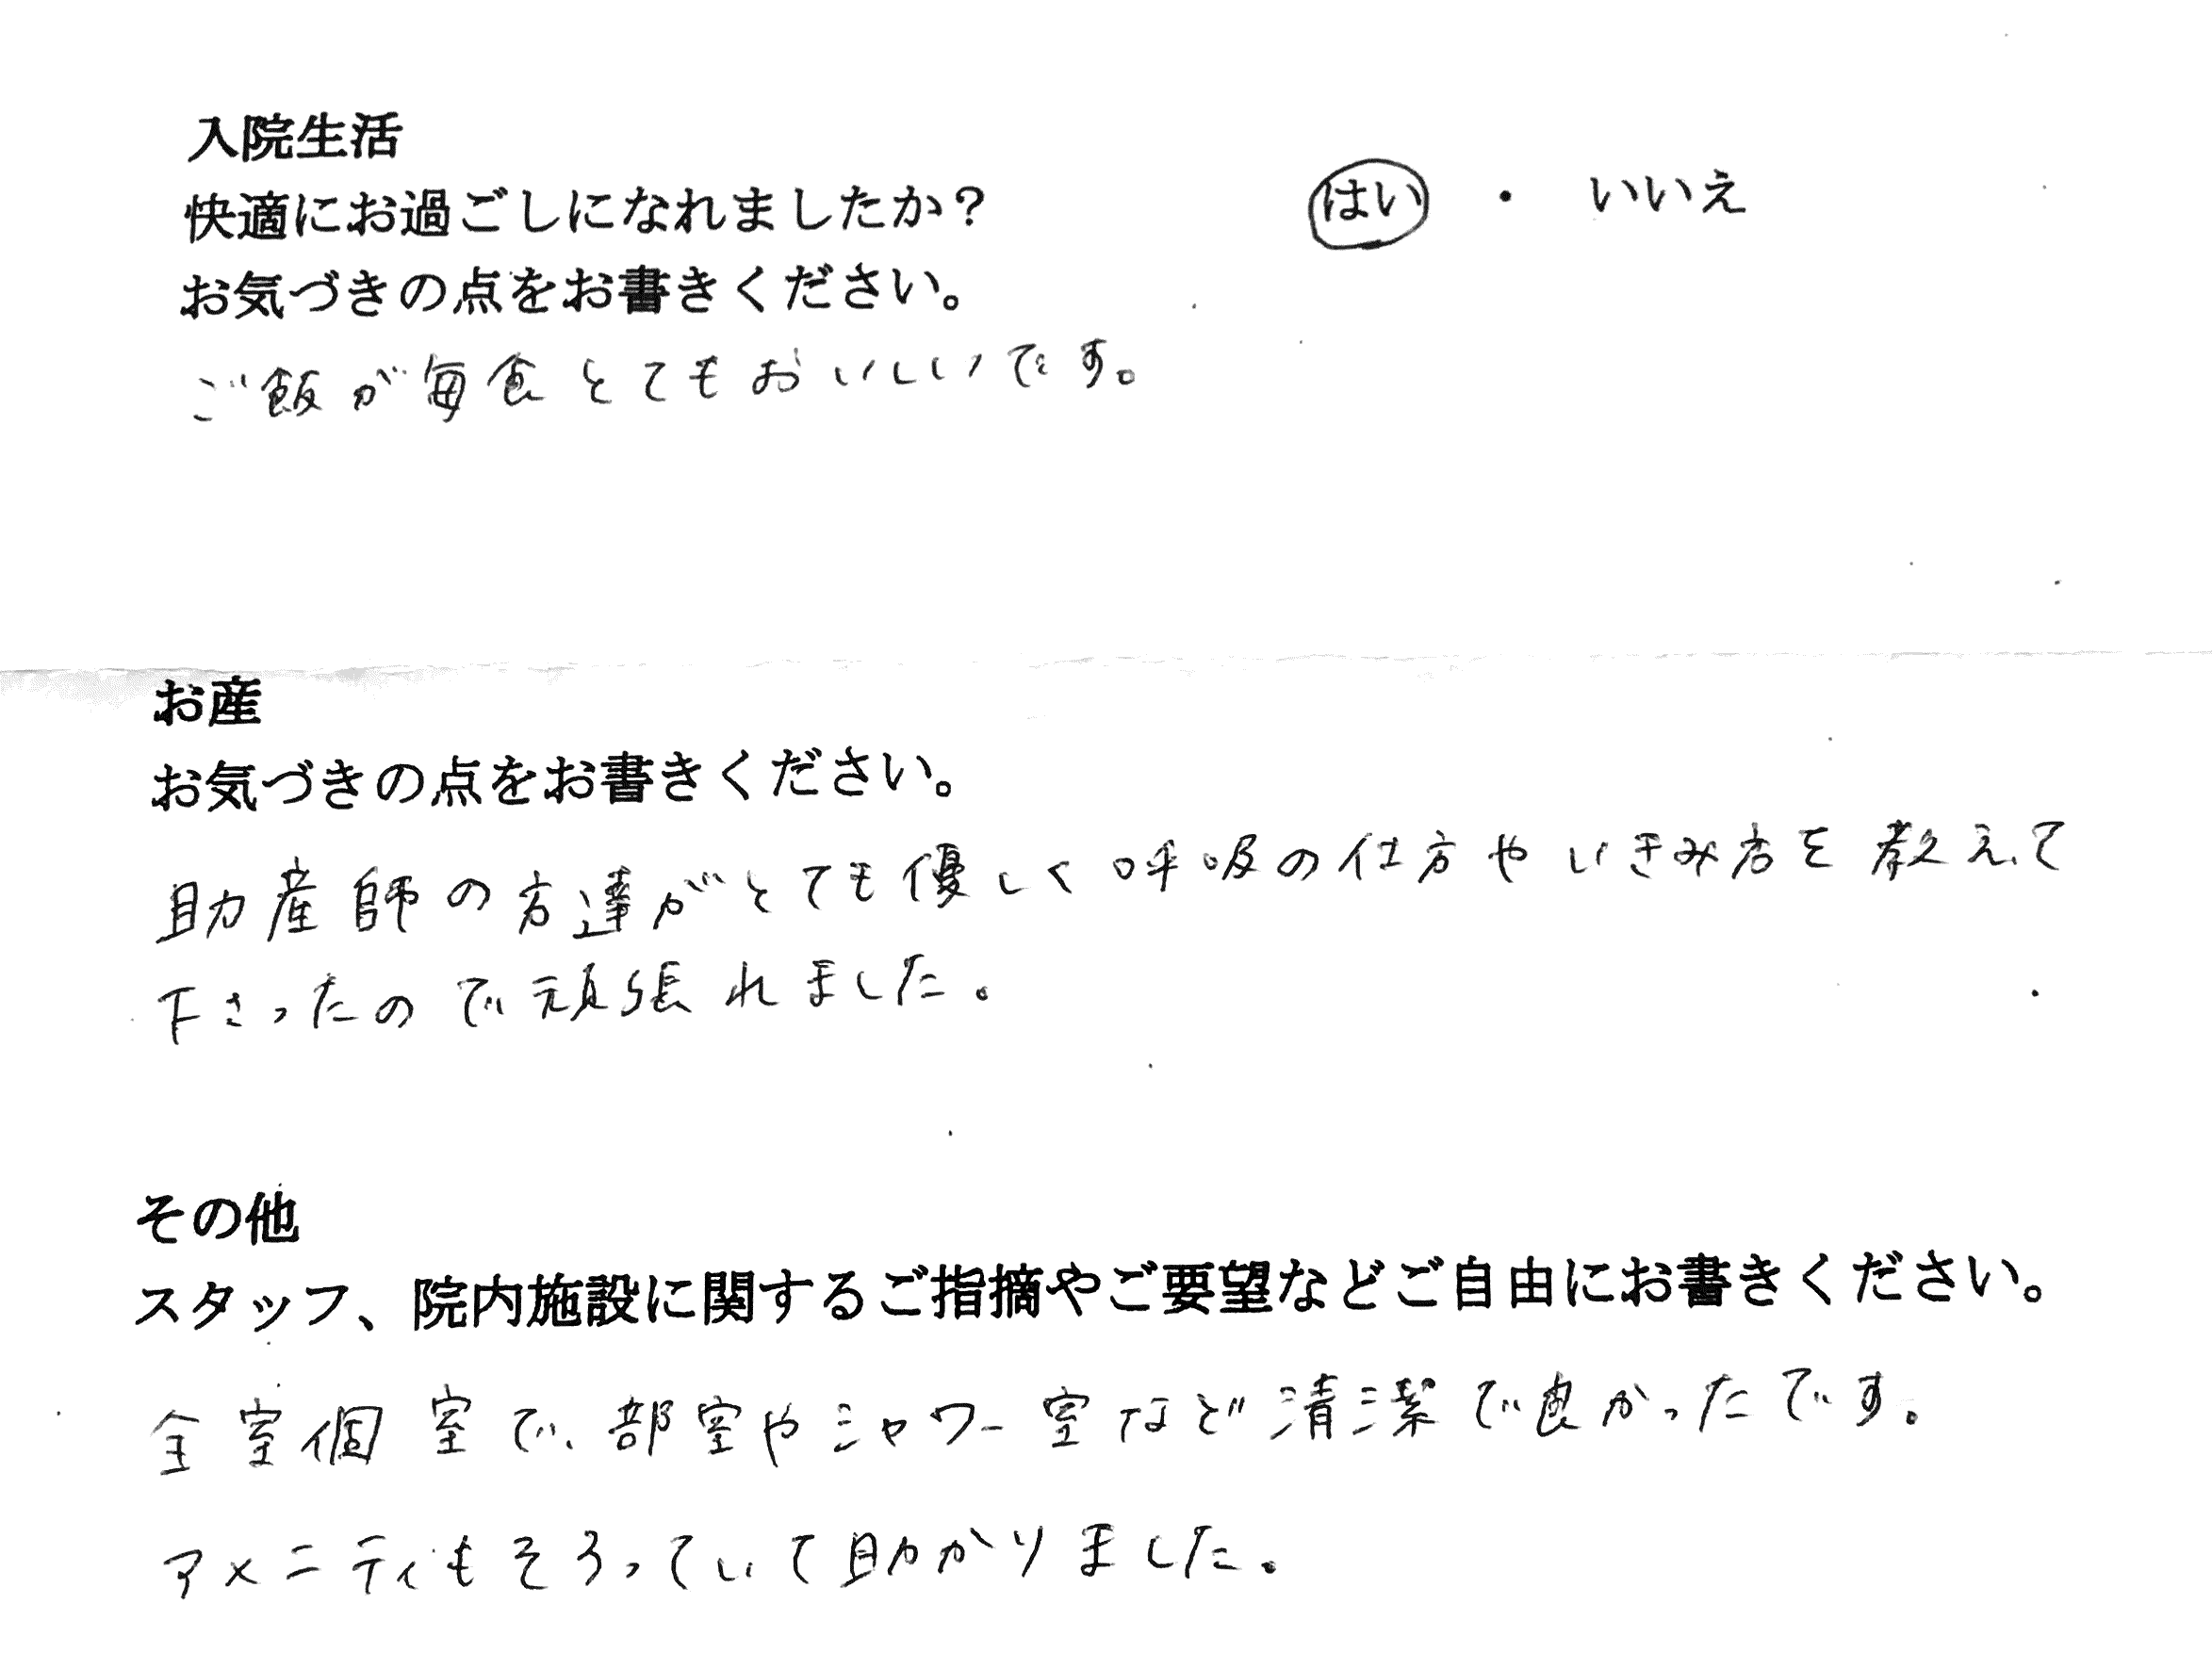 入院生活
快適にお過ごしになれましたか? はい ・ いいえ
お気づきの点をお書きください。
ご飯が毎食とてもおいしいです。
お産
お気づきの点をお書きください。
助産師の方達がとても優しく呼吸の仕方やいきみ方を教えて
下さったので頑張れました。
その他
スタッフ、院内施設に関するご指摘やご要望などご自由にお書きください。
全室個室で、部室やシャワー室など清潔で良かったです。
アメニティもそろっていて助かりました。